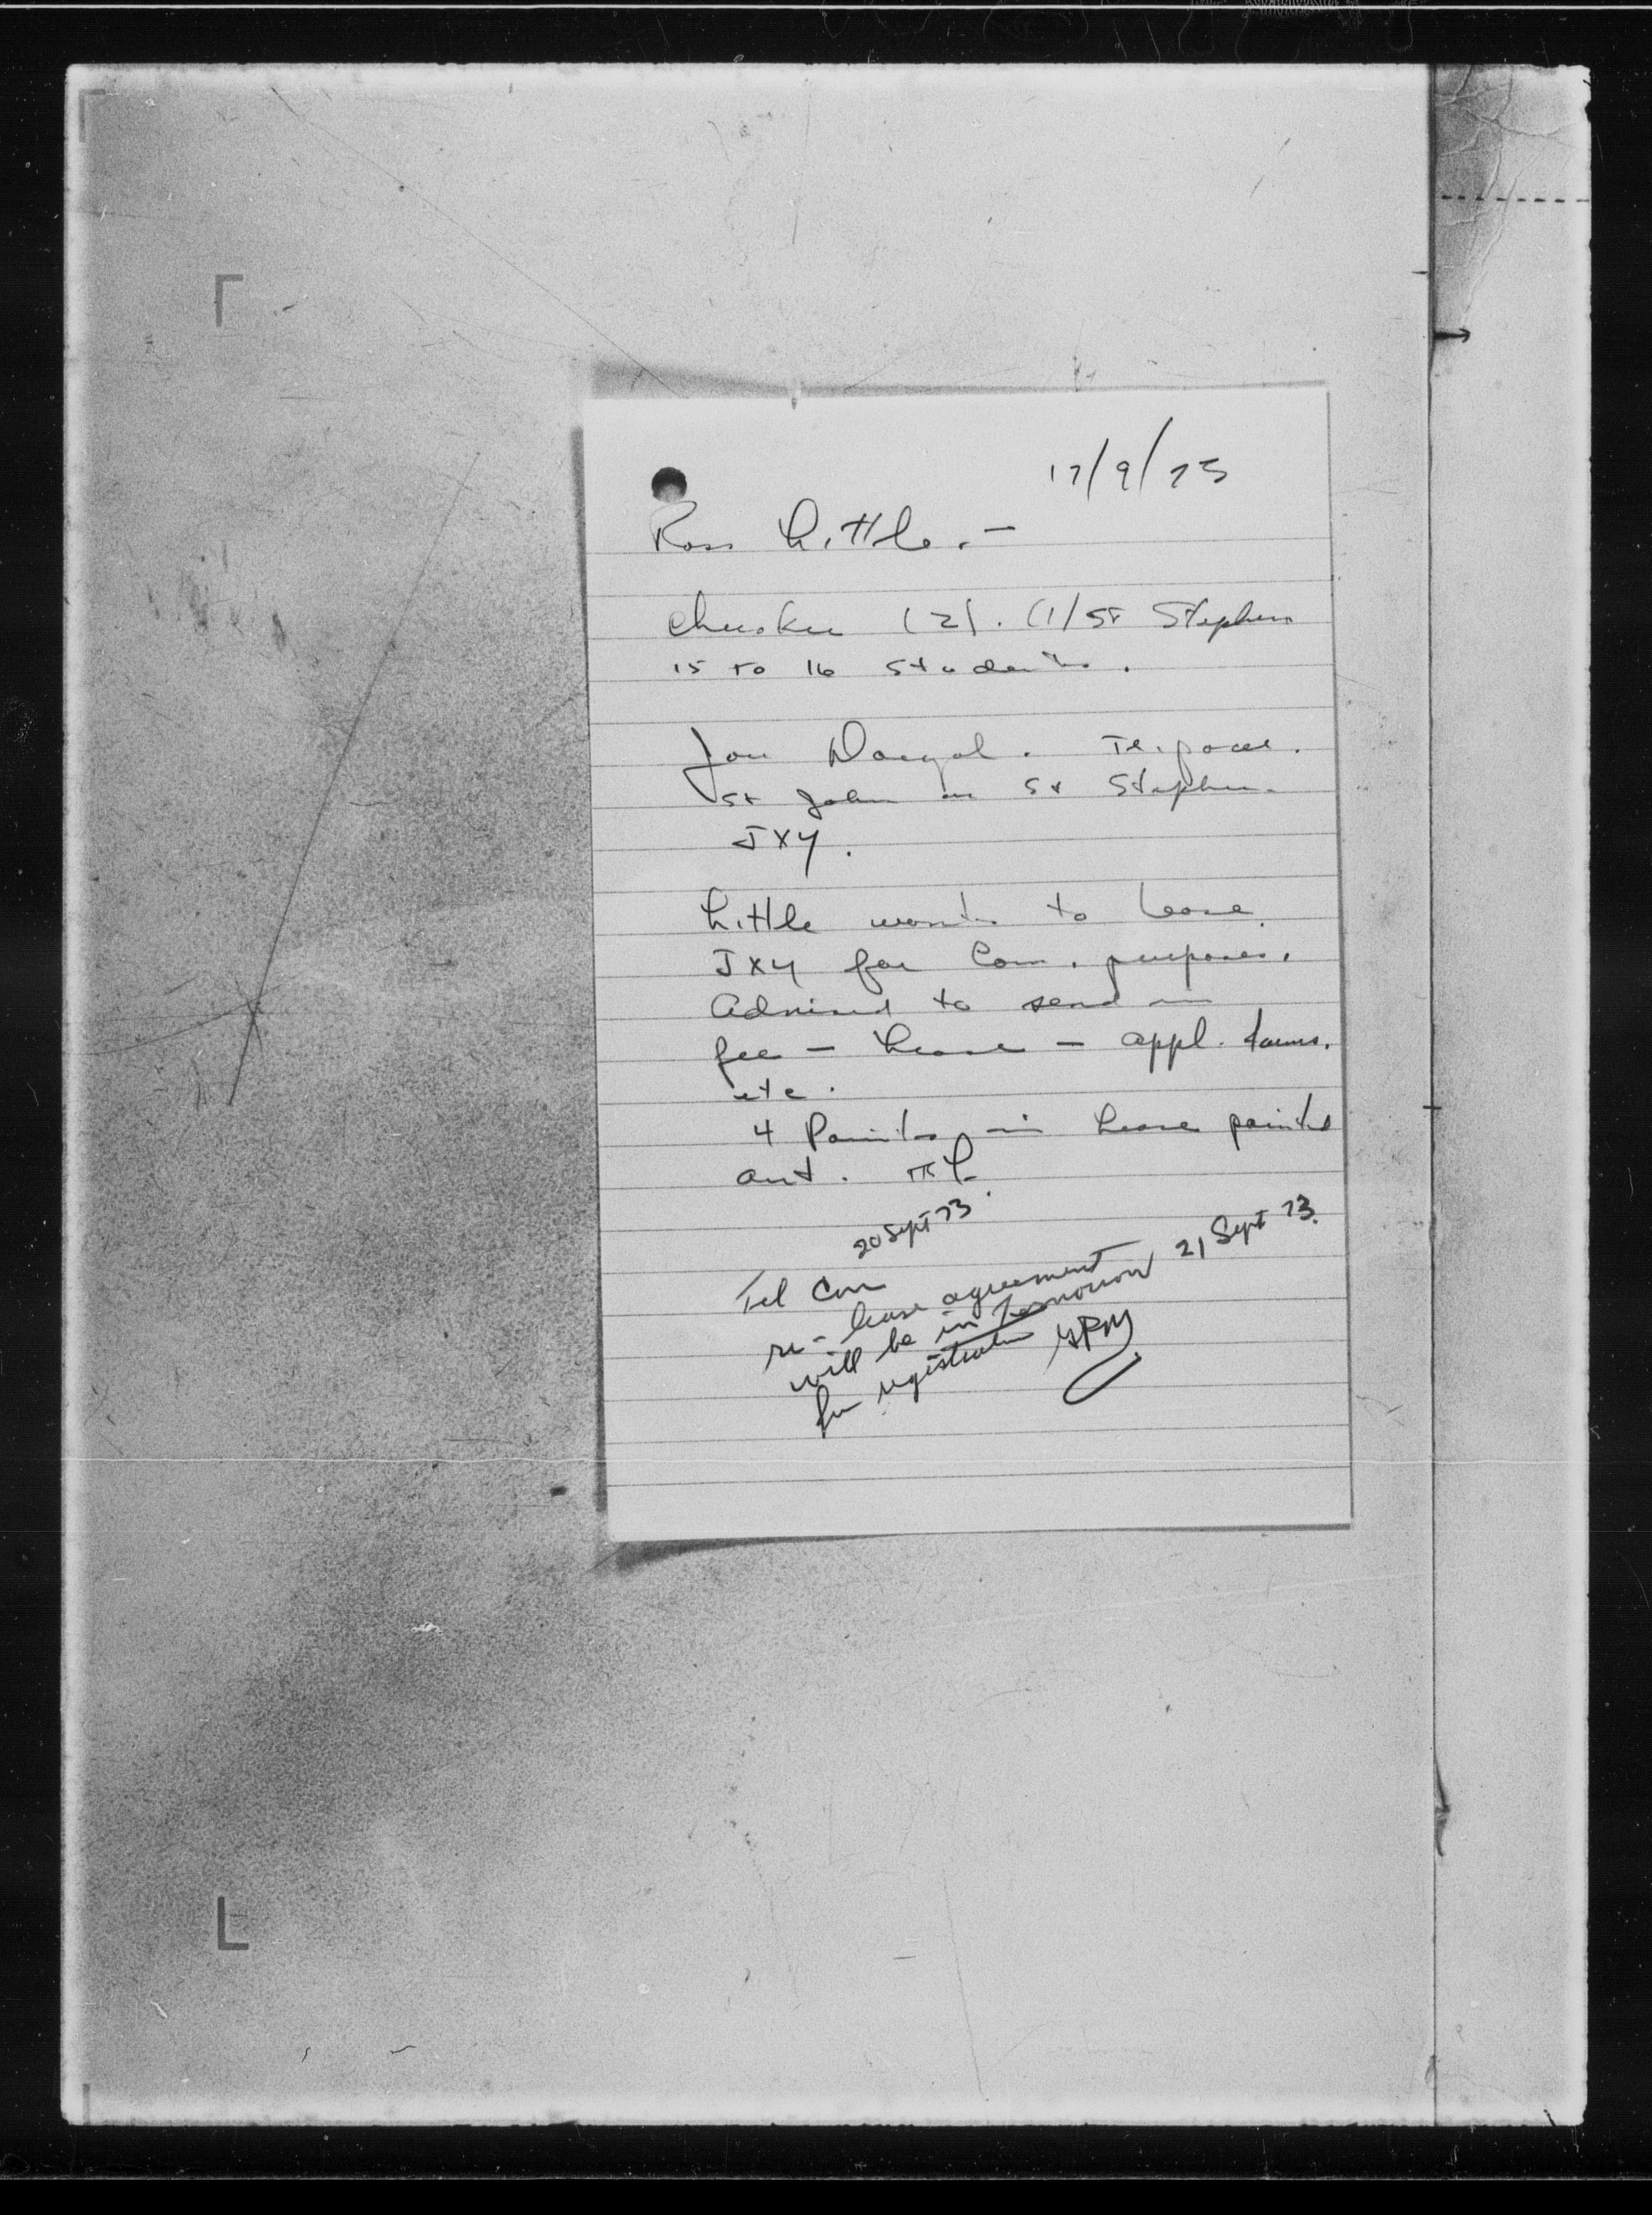 17/9/73
Ross Little. -
Cherokee (2). (1) St Stephen
15 to 16 students.
Jon
St John or St Stephen.
JXY.
Little wants to lease
JXY for Com. purposes.
Advised to send in
fee - Lease - appl. forms.
etc.
4 Points in Lease pointed
out.
20 Sept 73
Tel Con
re - lease agreement
will be in tomorrow 21 Sept 73.
for registration